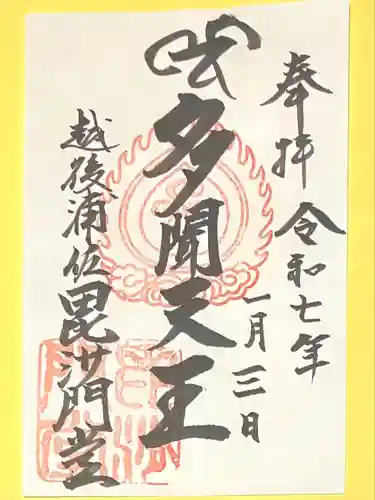 奉拝 令和七年
一月三日
多聞天王
越後浦佐毘沙門堂